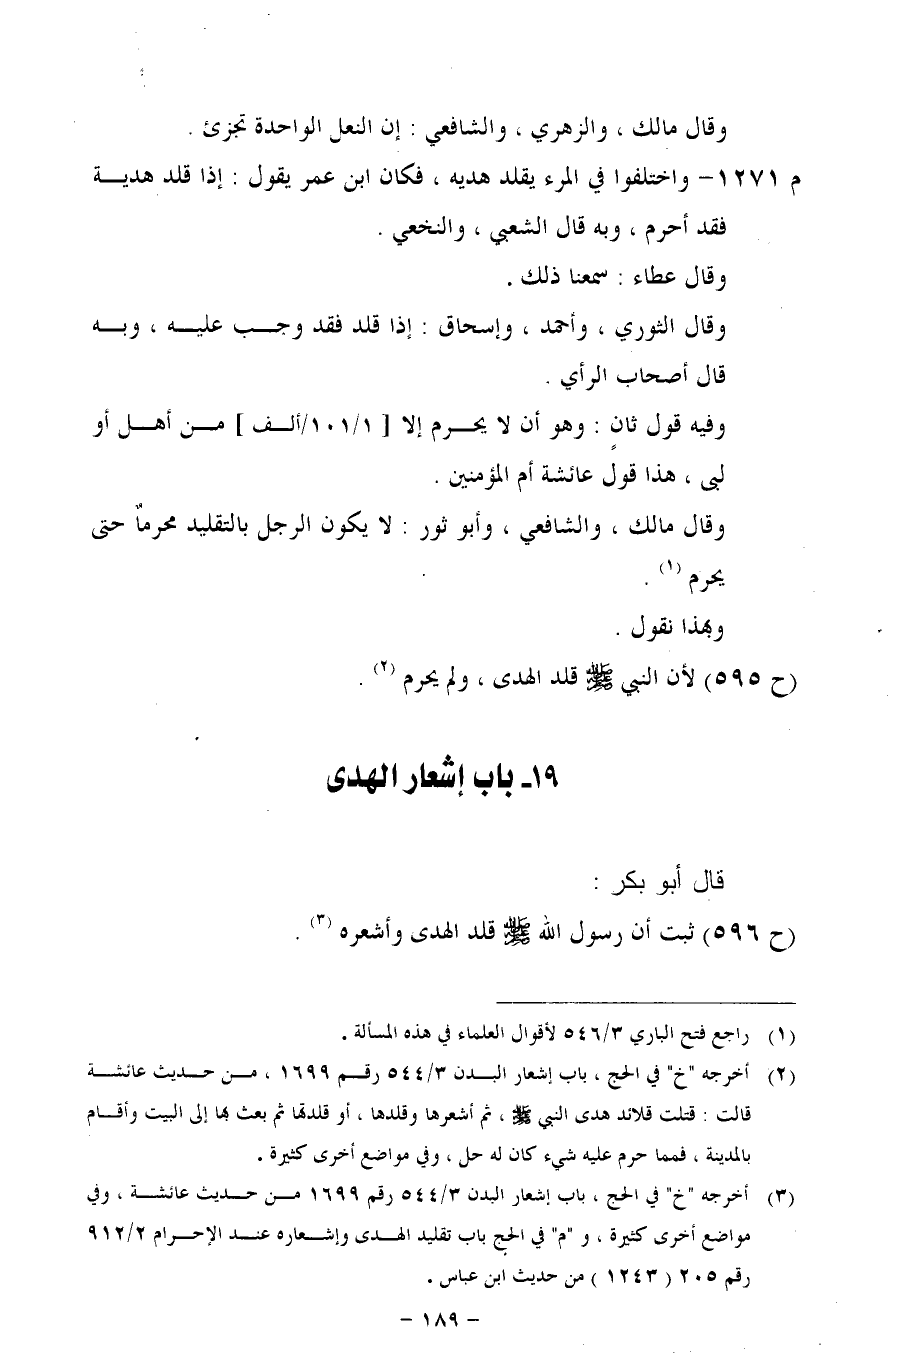 وقال مالك ، والزهري ، والشافعي : إن النعل الواحدة تجزئ .
م ١٢٧١- واختلفوا في المرء يقلد هديه ، فكان ابن عمر يقول : إذا قلد هديـــة
فقد أحرم ، وبه قال الشعبي ، والنخعي .
وقال عطاء : سمعنا ذلك .
وقال الثوري ، وأحمد ، وإسحاق : إذا قلد فقد وجـب عليـه ، وبـه
قال أصحاب الرأي .
وفيه قول ثانٍ : وهو أن لا يحـرم إلا [ ١٠١/١/ألـف ] مـن أهـل أو
لبى ، هذا قول عائشة أم المؤمنين .
وقال مالك ، والشافعي ، وأبو ثور : لا يكون الرجل بالتقليد محرماً حتى
يحرم (١) .
وبهذا نقول .
(ح ٥٩٥) لأن النبي ﷺ قلد الهدى ، ولم يحرم (٢) .
١٩ـ باب إشعار الهدى
قال أبو بكر :
(ح ٥٩٦) ثبت أن رسول الله ﷺ قلد الهدى وأشعره (٣) .
(١) راجع فتح الباري ٥٤٦/٣ لأقوال العلماء في هذه المسألة .
(٢) أخرجه "خ" في الحج ، باب إشعار البـدن ٥٤٤/٣ رقـم ١٦٩٩ ، مـن حـديث عائشـة
قالت : فتلت قلائد هدى النبي ﷺ ، ثم أشعرها وقلدها ، أو قلدتها ثم بعث بها إلى البيت وأقـام
بالمدينة ، فما حرم عليه شيء كان له حل ، وفي مواضع أخرى كثيرة .
(٣) أخرجه "خ" في الحج ، باب إشعار البدن ٥٤٤/٣ رقم ١٦٩٩ مـن حـديث عائشـة ، وفي
مواضع أخرى كثيرة ، و "م" في الحج باب تقليد الهـدى وإشـعاره عنـد الإحـرام ٩١٢/٢
رقم ٢٠٥ ( ١٢٤٣ ) من حديث ابن عباس .
- ١٨٩ -